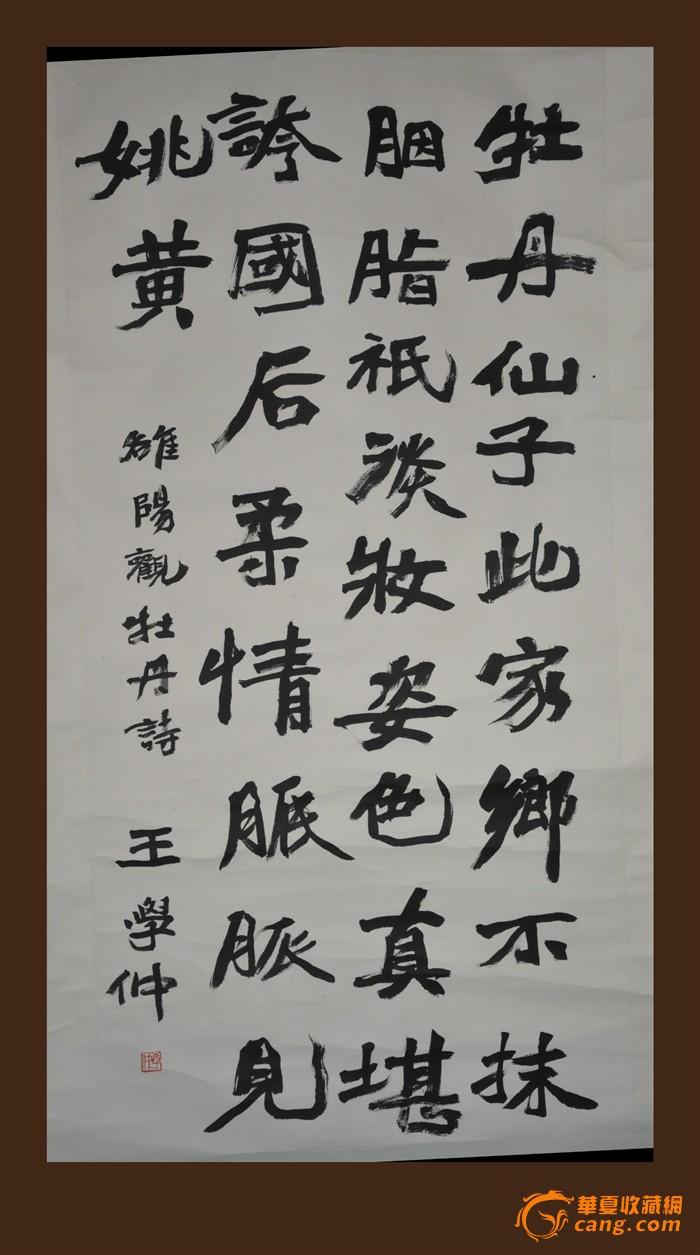 牡丹仙子此家鄉不抹
胭脂祇淡妝姿色真堪
誇國后柔情脈脈見
姚黃
雒陽觀牡丹詩 王學仲
華夏收藏網
cang.com